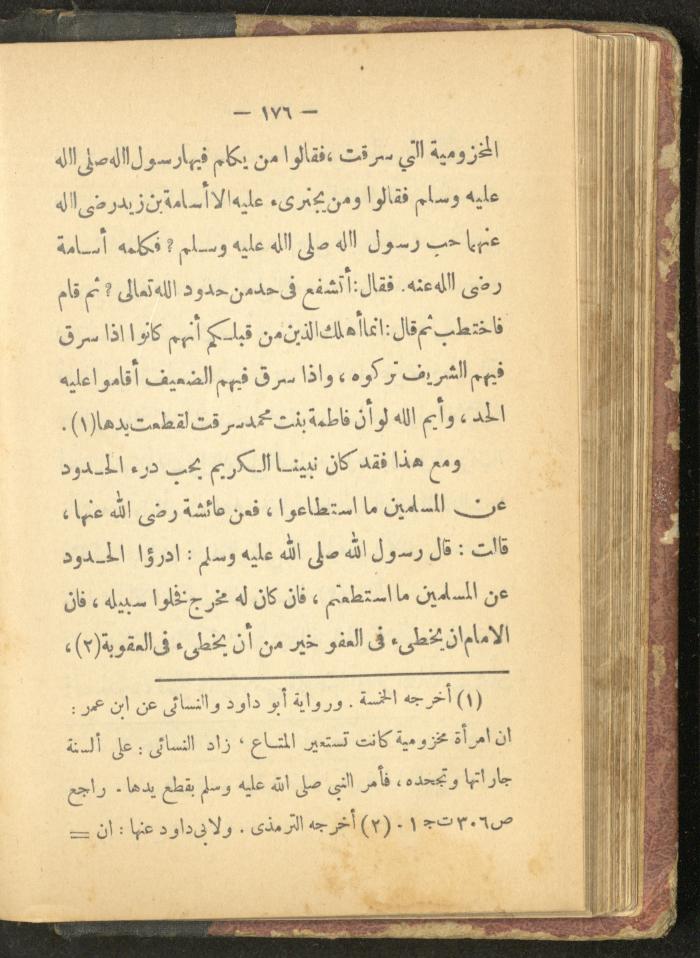 — ١٧٦ —
المخزومية التي سرقت ،فقالوا من يكلم فيها رسول الله صلى الله
عليه وسلم فقالوا ومن يجترىء عليه الا أسامة بن زيد رضى الله
عنهما حب رسول الله صلى الله عليه وسلم ? فكلمه أسامة
رضى الله عنه. فقال: أتشفع فى حد من حدود الله تعالى ? ثم قام
فاختطب ثم قال: انما أهلك الذين من قبلكم أنهم كانوا اذا سرق
فيهم الشريف تركوه ، واذا سرق فيهم الضعيف أقاموا عليه
الحد ، وأيم الله لو أن فاطمة بنت محمد سرقت لقطعت يدها (١) .
ومع هذا فقد كان نبينا الكريم يحب درء الحدود
عن المسلمين ما استطاعوا ، فعن عائشة رضى الله عنها ،
قالت : قال رسول الله صلى الله عليه وسلم : ادرؤا الحدود
عن المسلمين ما استطعتم ، فان كان له مخرج فخلوا سبيله ، فان
الامام ان يخطىء فى العفو خير من أن يخطىء فى العقوبة (٢) ،
(١) أخرجه الخمسة . ورواية أبو داود والنسائى عن ابن عمر :
ان امرأة مخزومية كانت تستعير المتاع ، زاد النسائى : على ألسنة
جاراتها وتجحده ، فأمر النبي صلى الله عليه وسلم بقطع يدها . راجع
ص ٣٠٦ ت ج ١ . (٢) أخرجه الترمذى . ولابى داود عنها : ان =